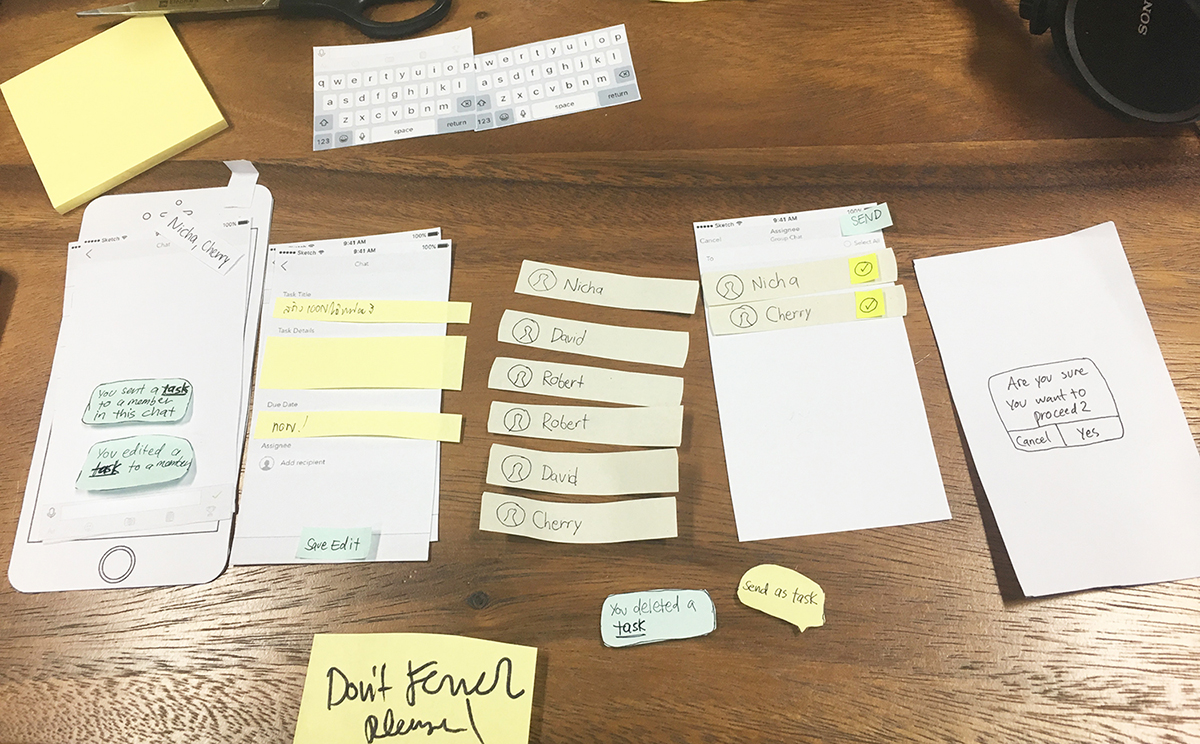 SONY
q w e r t y u i o p
a s d f g h j k l
z x c v b n m
123 space return
w e r t y u i o p
a s d f g h j k l
z x c v b n m
123 space return
100%
Nicha, Cherry
Chat
You sent a task
to a member
in this chat
You edited a
task to a member
100%
Sketch 9:41 AM 100%
Chat
Task Title
Task Details
Due Date
now!
Assignee
Add recipient
Save Edit
Nicha
David
Robert
Robert
David
Cherry
Sketch 9:41 AM 100%
SEND
Cancel Assignee
Group Chat
Select All
To
Nicha
Cherry
Are you sure
you want to
proceed?
Cancel Yes
You deleted a
task
Send as task
Don't
please!